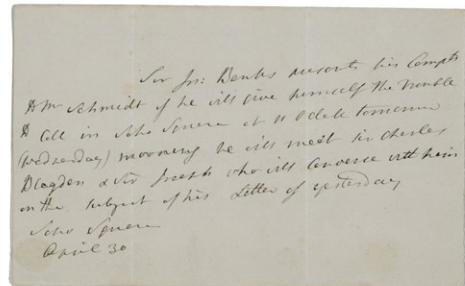 Sir Jos: Banks presents his Compts
to Mr Schmidt if he will give himself the trouble
to call in Soho Square at 11 OClock tomorrow
(Wednesday) morning he will meet Sir Charles
Blagden & Sir Joseph who will Converse with him
on the subject of his Letter of yesterday
Soho Square
April 30